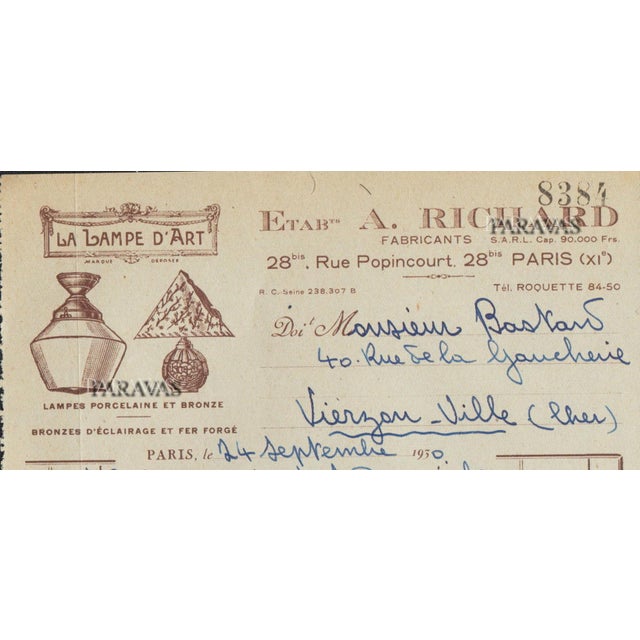 8384
LA LAMPE D'ART
MARQUE DÉPOSÉE
ETABTS A. RICHARD
PARAVAS
FABRICANTS S.A.R.L. Cap. 90.000 Frs.
28bis, Rue Popincourt, 28bis PARIS (XIe)
R. C. Seine 238.307 B Tél. ROQUETTE 84-50
Doit Monsieur
40. Rue de la Gaucherie
PARAVAS
LAMPES PORCELAINE ET BRONZE
Vierzon-Ville (Cher)
BRONZES D'ÉCLAIRAGE ET FER FORGÉ
PARIS, le 24 septembre 1930